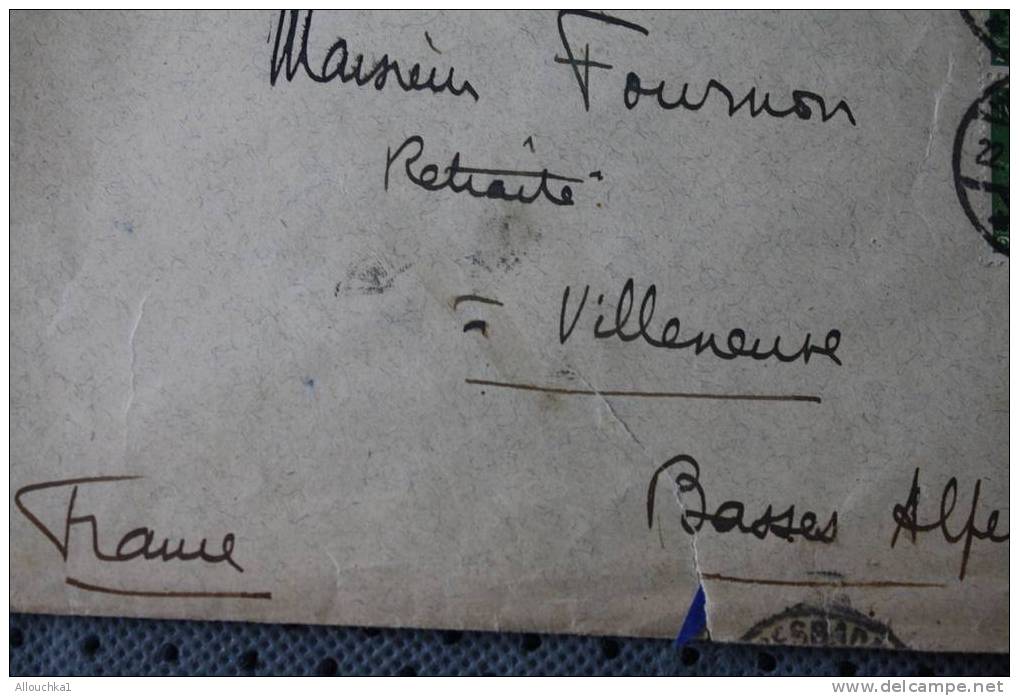 Monsieur Fournon
22
Retraité
= Villeneuve
Basses Alpe
France
Allouchka1
www.delcampe.net